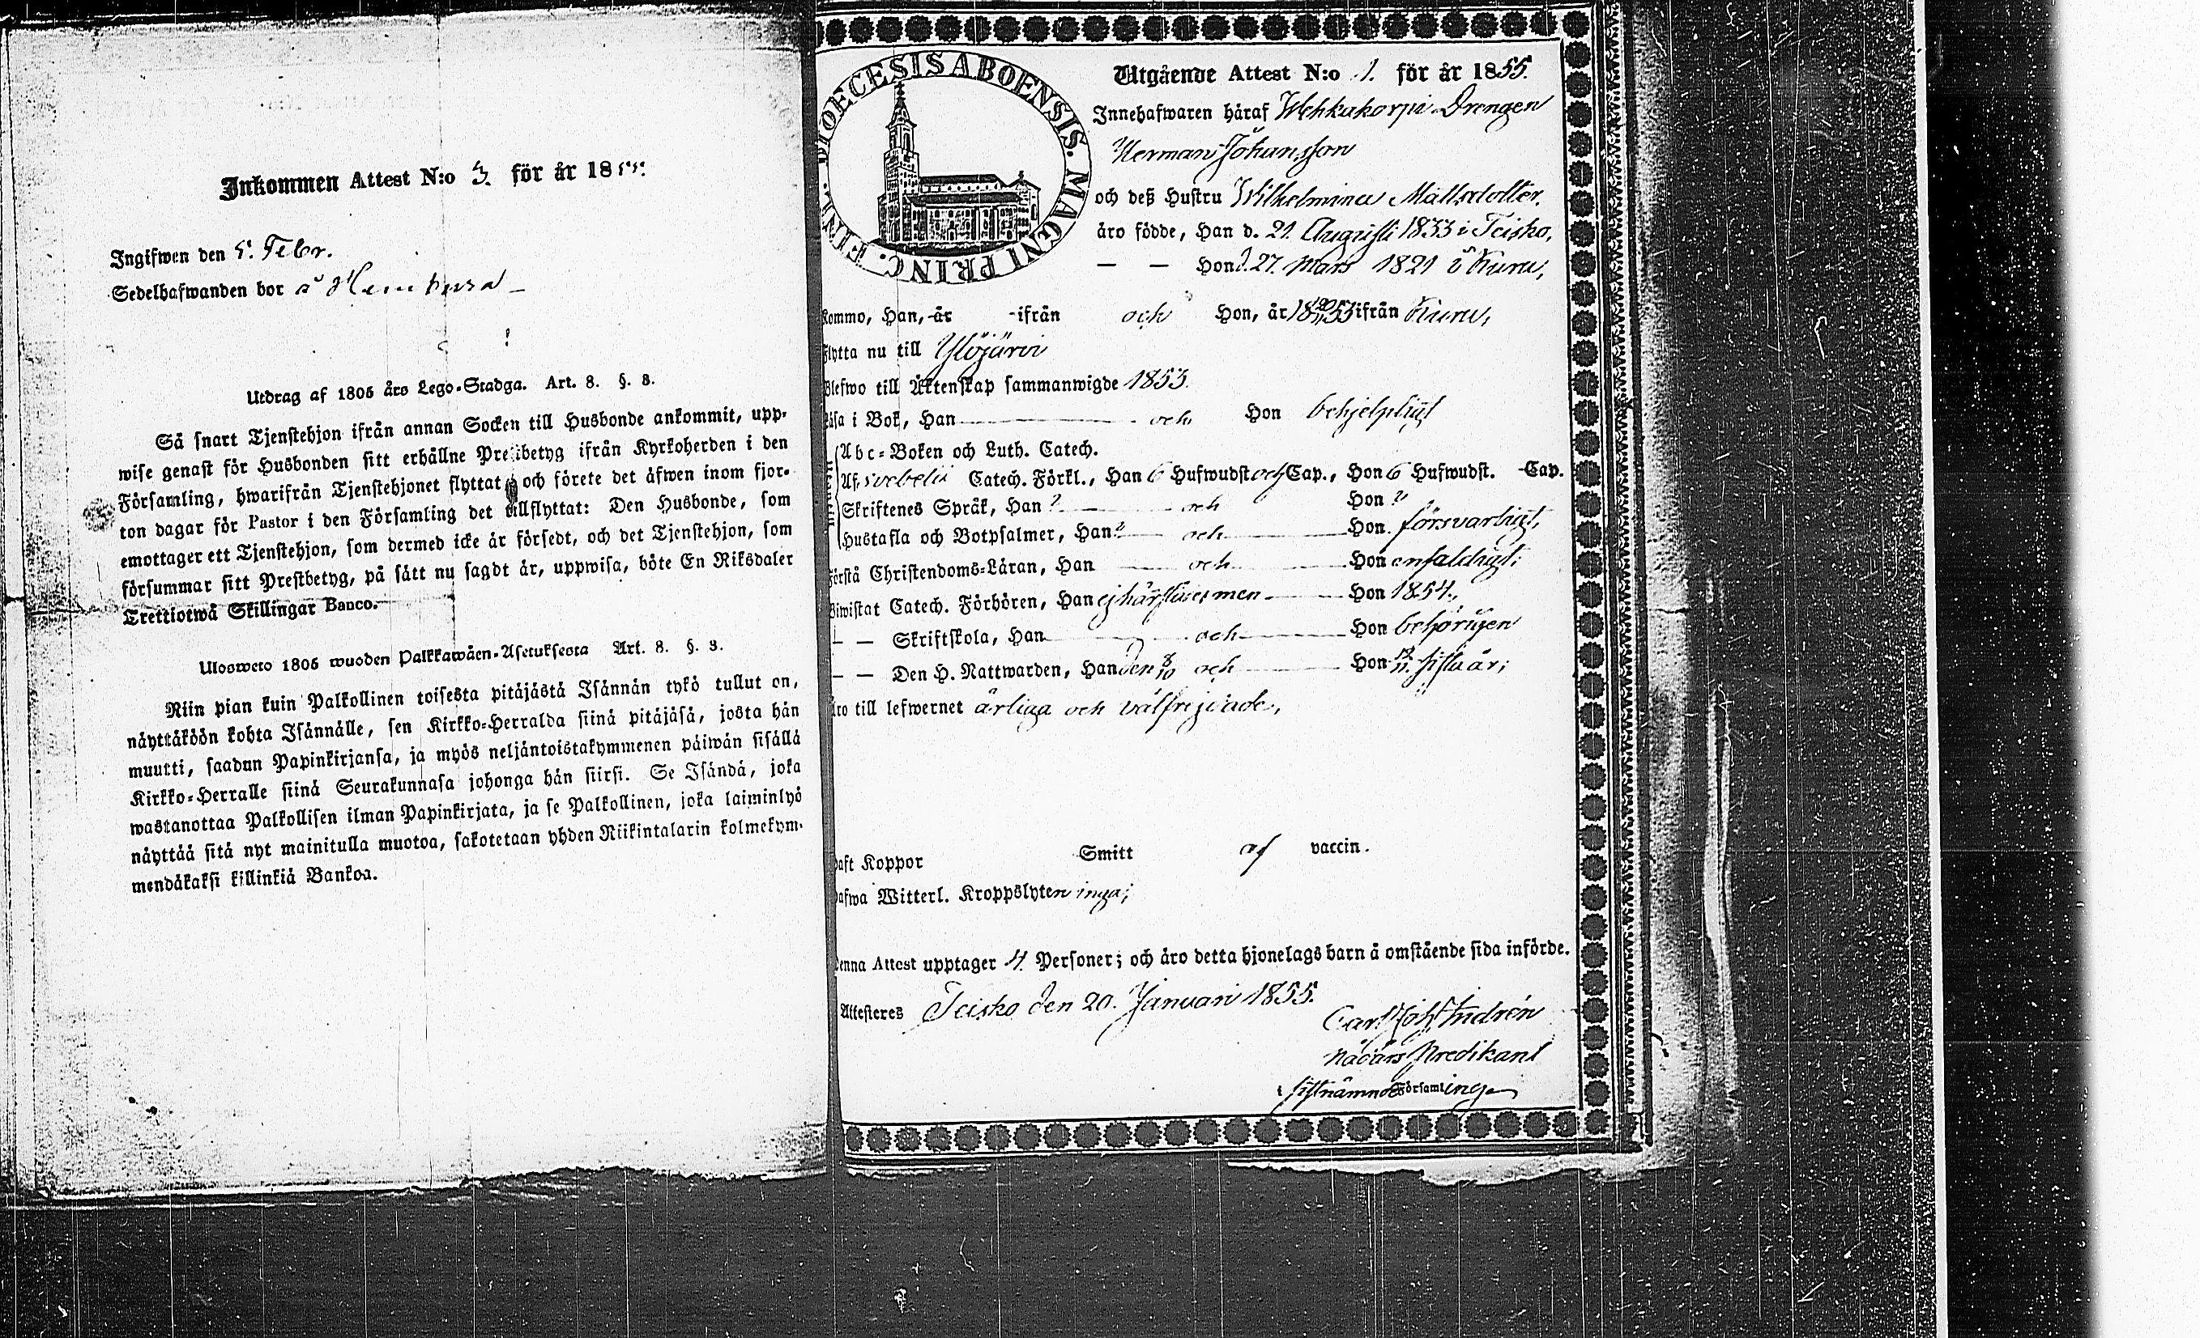 Inkommen Attest N:o 3. för år 1855.
Ingifwen den 5. Febr.
Sedelhafwanden bor å
Utdrag af 1805 års Lego-Stadga. Art. 8. §. 8.
Så snart Tjenstehjon ifrån annan Socken till Husbonde ankommit, upp-
wise genast för Husbonden sitt erhållne Prestbetyg ifrån Kyrkoherden i den
Församling, hwarifrån Tjenstehjonet flyttat, och förete det äfwen inom fjor-
ton dagar för Pastor i den Församling det tillflyttat: Den Husbonde, som
emottager ett Tjenstehjon, som dermed icke är försedt, och det Tjenstehjon, som
försummar sitt Prestbetyg, på sätt nu sagdt är, uppwisa, böte En Riksdaler
Trettiotwå Skillingar Banco.
Ulosweto 1805 wuoden Palkkawäen-Asetuksesta Art. 8. §. 8.
Niin pian kuin Palkollinen toisesta pitäjästä Isännän tykö tullut on,
näyttäköön kohta Isännälle, sen Kirkko-Herralda siinä pitäjäsä, josta hän
muutti, saadun Papinkirjansa, ja myös neljäntoistakymmenen päiwän sisällä
Kirkko-Herralle siinä Seurakunnasa johonga hän siirsi. Se Isändä, joka
wastanottaa Palkollisen ilman Papinkirjata, ja se Palkollinen, joka laiminlyö
näyttää sitä nyt mainitulla muotoa, sakotetaan yhden Riikintalarin kolmekym-
mendäkaksi killinkiä Bankoa.
DIOECESIS ABOENSIS. MAGNI PRINC. FINL.
Utgående Attest N:o 1. för år 1855.
Innehafwaren häraf Wehkakorpi Drengen
Herman Johansson
och deß Hustru Wilhelmina Mattsdotter,
äro födde, Han d. 21. Augusti 1833 i Teisko,
— — Hon d. 27. Mars 1821 i Kuru,
Kommo, Han, år ifrån och Hon, år 1853 ifrån Kuru,
Flytta nu till Ylöjärvi
Blefwo till Äktenskap sammanwigde 1853.
Läsa i Bok, Han och Hon behjelpligt
Abc-Boken och Luth. Catech.
Af Svebelii Catech. Förkl., Han 6 Hufwudst och Cap., Hon 6 Hufwudst. Cap.
Skriftenes Språk, Han och Hon
Hustafla och Botpsalmer, Han och Hon försvarligt,
Förstå Christendoms-Läran, Han och Hon enfaldigt;
Biwistat Catech. Förhören, Han ej här, men Hon 1854,
— — Skriftskola, Han och Hon behörigen
— — Den H. Nattwarden, Han den 8/10 och Hon sista år;
Äro till lefwernet ärliga och välfrejdade,
Haft Koppor Smitt af vaccin.
Hafwa Witterl. Kroppslyten inga;
Denna Attest upptager 4 Personer; och äro detta hjonelags barn å omstående sida införde.
Attesteras Teisko den 20. Januari 1855.
Carl Joh. Indrén
Nådårs Predikant
i sistnämnde Församling